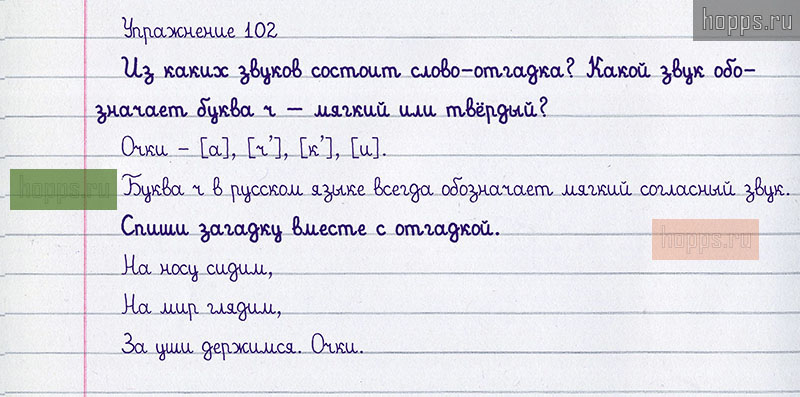 hopps.ru
Упражнение 102
Из каких звуков состоит слово-отгадка? Какой звук обо-
значает буква ч – мягкий или твёрдый?
Очки – [а], [ч’], [к’], [и].
hopps.ru
Буква ч в русском языке всегда обозначает мягкий согласный звук.
Спиши загадку вместе с отгадкой.
hopps.ru
На носу сидим,
На мир глядим,
За уши держимся. Очки.